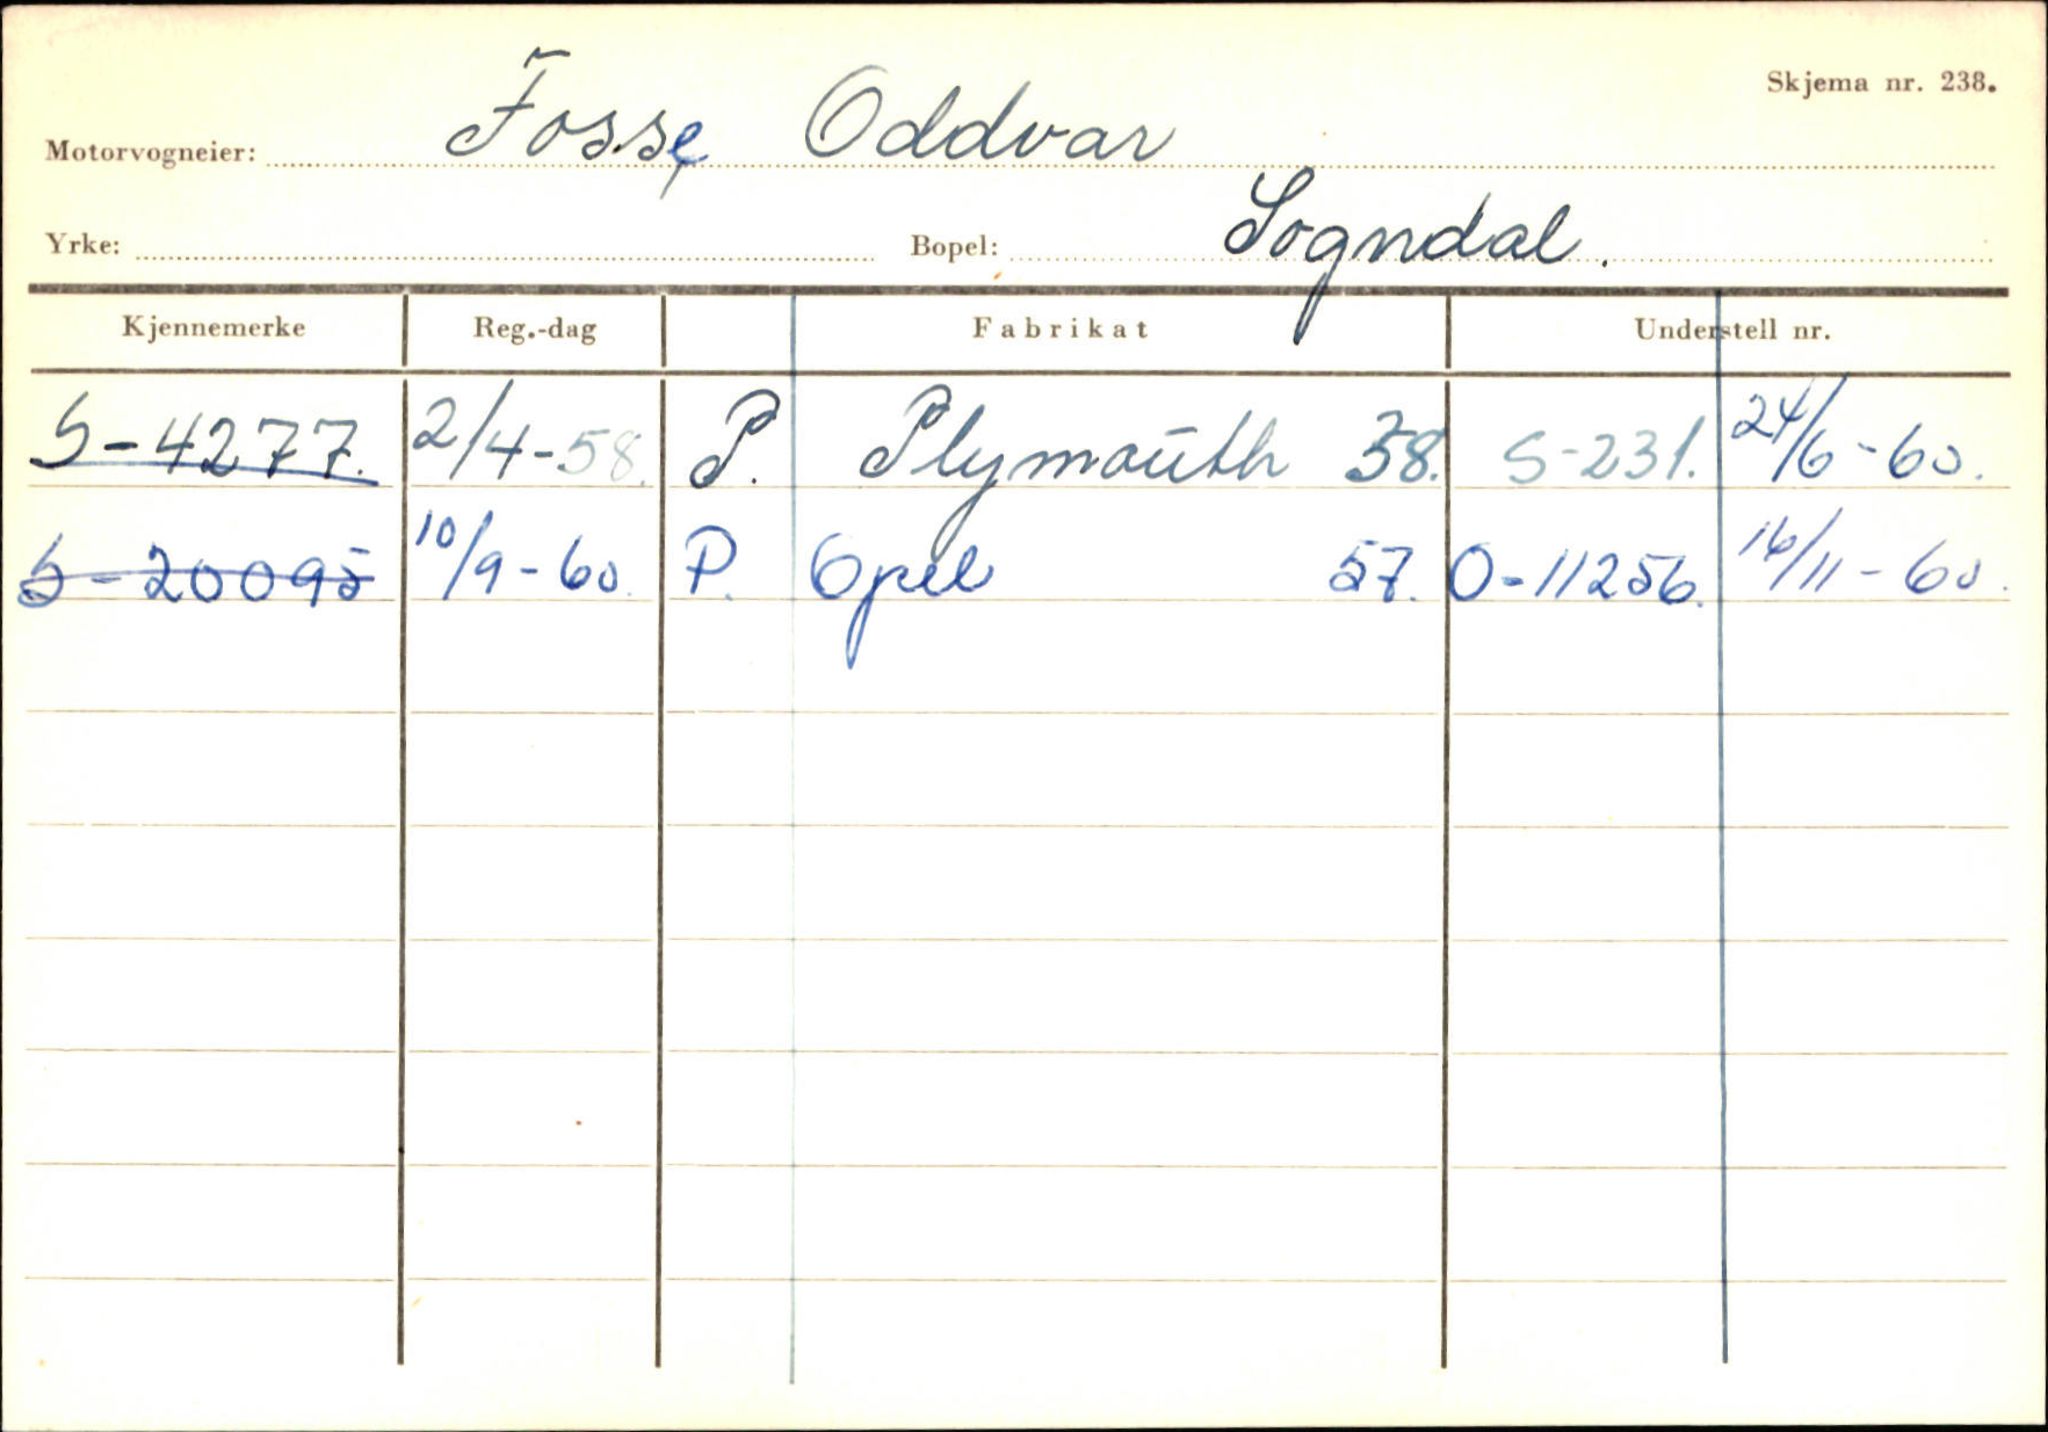 Skjema nr. 238.
Motorvogneier: Fosse Oddvar
Yrke: Bopel: Sogndal.
Kjennemerke Reg.-dag Fabrikat Understell nr.
S-4277. 2/4-58. P. Plymouth 38. S-231. 24/6-60.
S-20095 10/9-60. P. Opel 57. O-11256. 16/11-60.